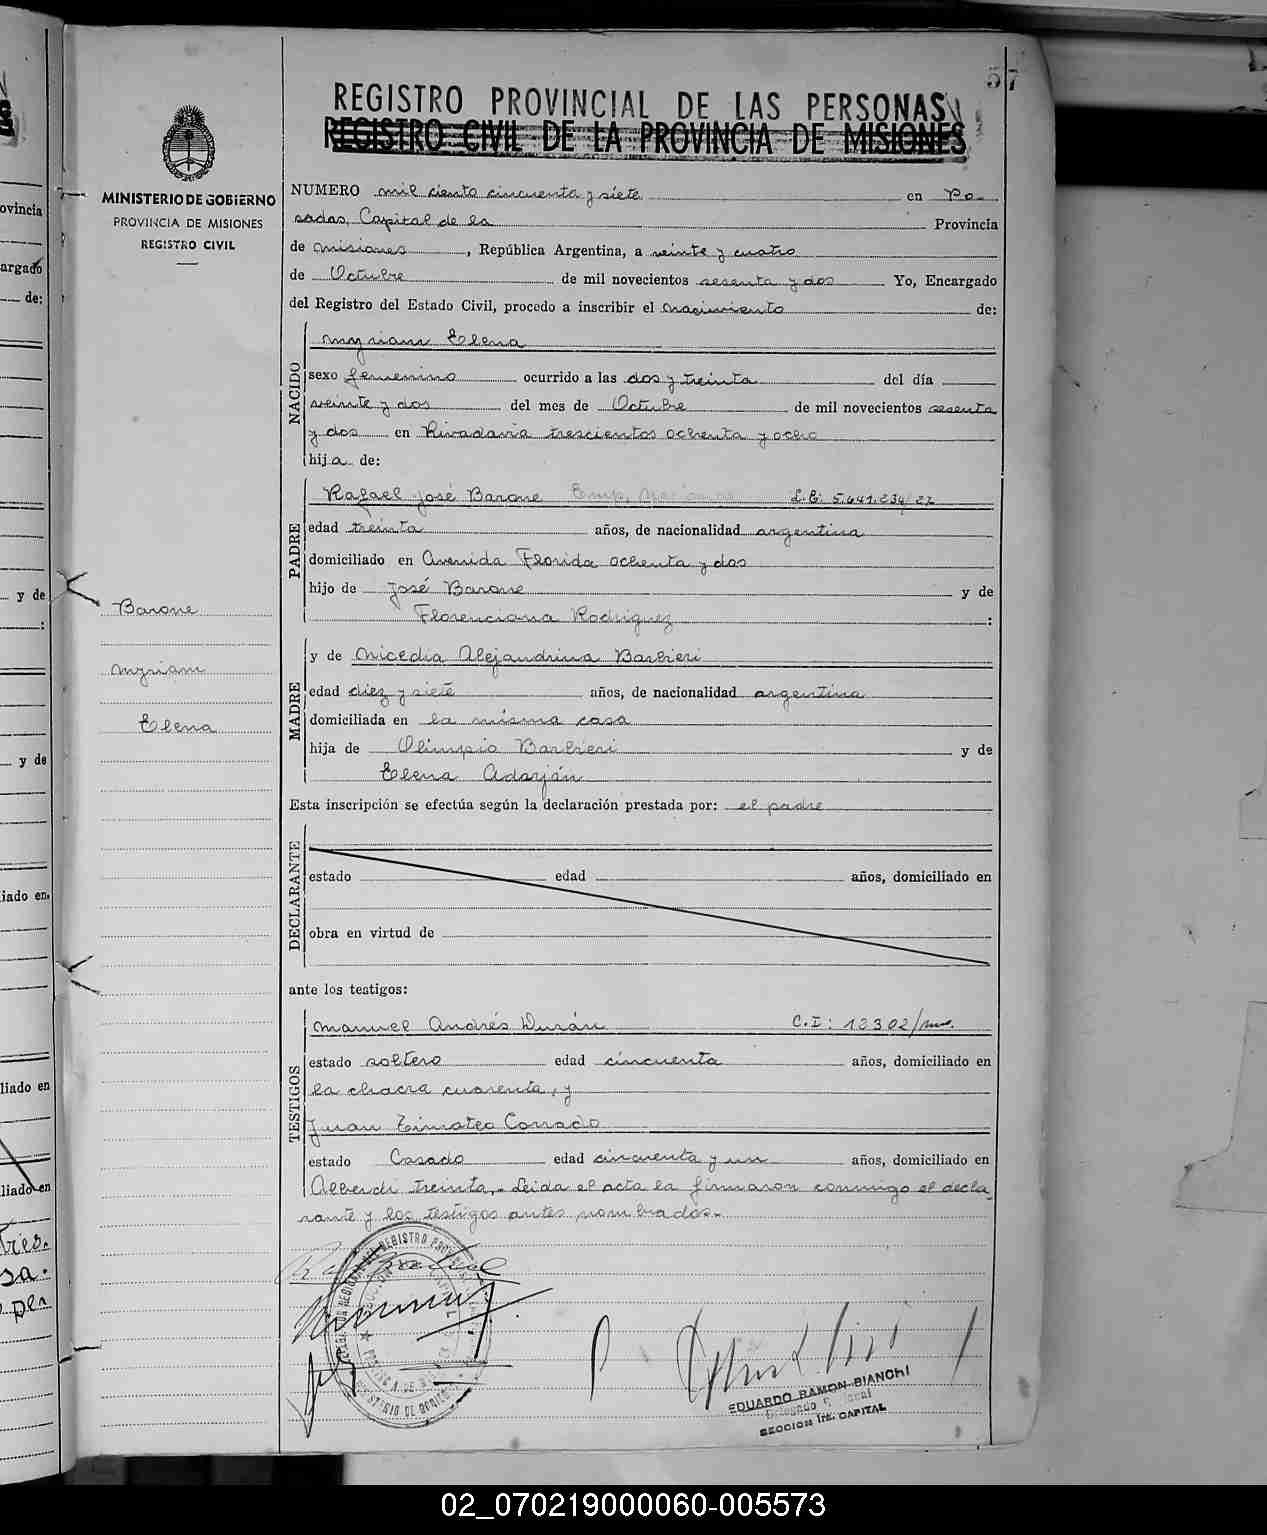 57
REGISTRO PROVINCIAL DE LAS PERSONAS
REGISTRO CIVIL DE LA PROVINCIA DE MISIONES
MINISTERIO DE GOBIERNO
PROVINCIA DE MISIONES
REGISTRO CIVIL
NUMERO mil ciento cincuenta y siete en Po-
sadas, Capital de la Provincia
de Misiones, República Argentina, a veinte y cuatro
de Octubre de mil novecientos sesenta y dos Yo, Encargado
del Registro del Estado Civil, procedo a inscribir el Nacimiento de:
NACIDO
Myriam Elena
sexo femenino ocurrido a las dos y treinta del día
veinte y dos del mes de Octubre de mil novecientos sesenta
y dos en Rivadavia trescientos ochenta y ocho
hija de:
PADRE
Rafael José Barone L.E: 5.641.234/22
edad treinta años, de nacionalidad argentina
domiciliado en Avenida Florida ochenta y dos
hijo de José Barone y de
Florenciana Rodriguez :
Barone
Myriam
Elena
MADRE
y de Nicedia Alejandrina Barbieri
edad diez y siete años, de nacionalidad argentina
domiciliada en la misma casa
hija de Olimpio Barbieri y de
Elena Adarján
Esta inscripción se efectúa según la declaración prestada por: el padre
DECLARANTE
estado edad años, domiciliado en
obra en virtud de
ante los testigos:
TESTIGOS
Manuel Andrés Durán C.I: 13302/
estado soltero edad cincuenta años, domiciliado en
la chacra cuarenta, y
Juan Timoteo Conrado
estado Casado edad cincuenta y un años, domiciliado en
Alberdi treinta.- Leida el acta la firmaron conmigo el decla
rante y los testigos antes nombrados.-
EDUARDO RAMON BIANCHI
SECCION 1ra. CAPITAL
ovincia
argado
de:
y de
:
y de
iado en.
liado en
liado en
tres.
sa.
per
02_070219000060-005573